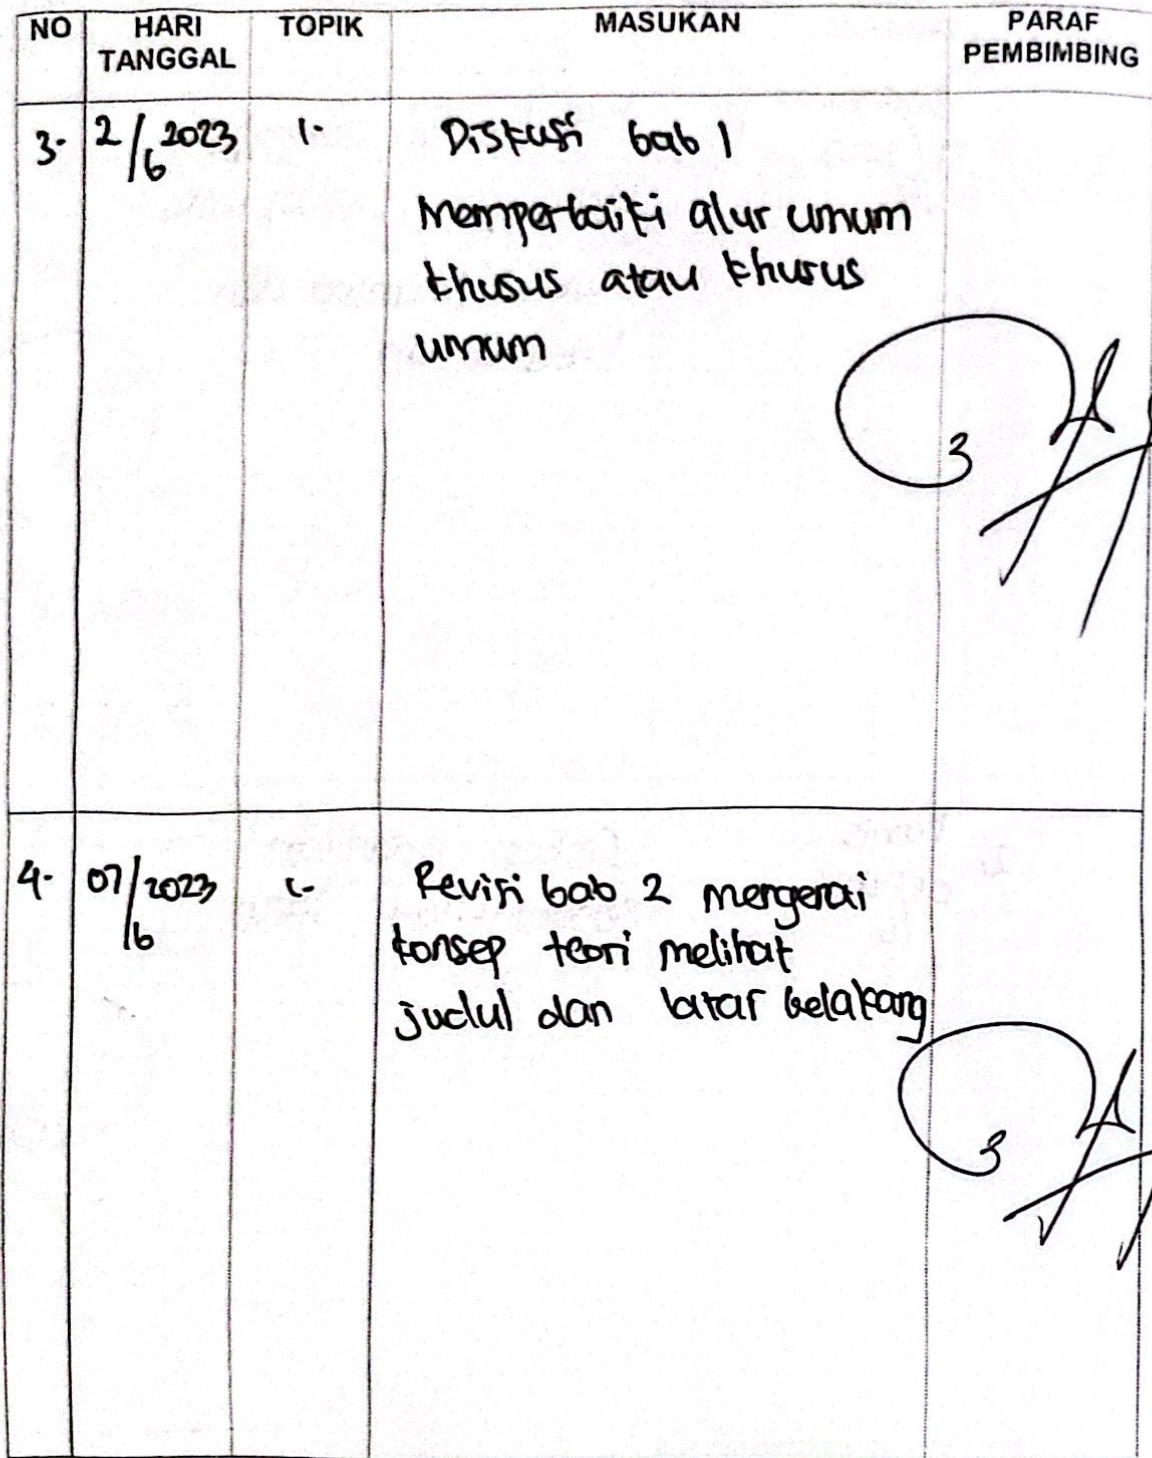 NO HARI TANGGAL TOPIK MASUKAN PARAF PEMBIMBING
3. 2/6 2023 1. Diskusi bab 1
Memperbaiki alur umum
khusus atau khusus
umum
4. 07/6 2023 Revisi bab 2 mengenai
konsep teori melihat
judul dan latar belakang